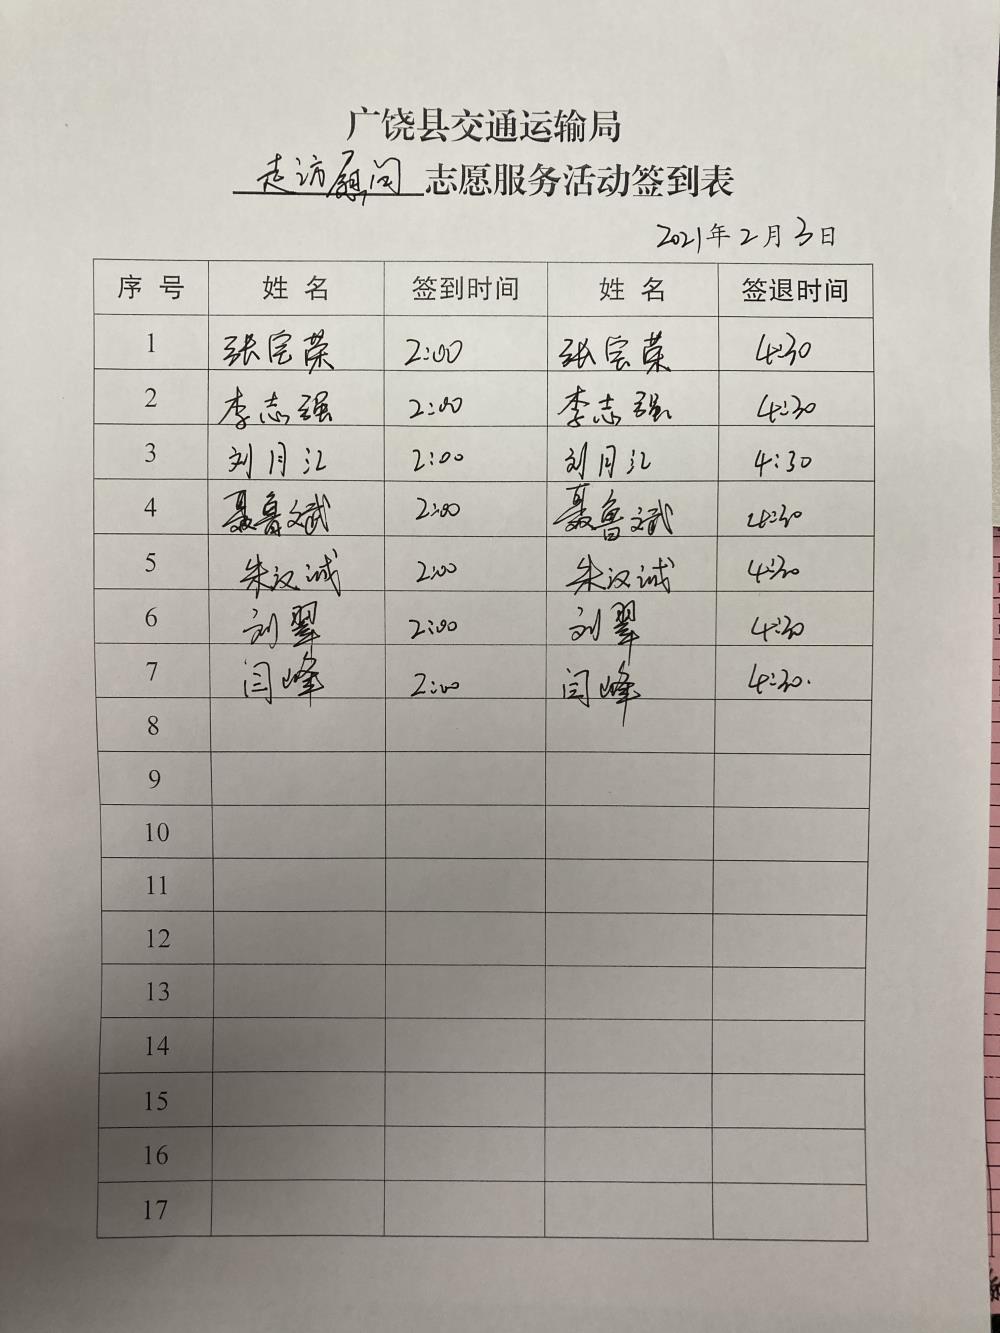 广饶县交通运输局
走访慰问 志愿服务活动签到表
2021年2月3日
序号 姓名 签到时间 姓名 签退时间
1 张宗荣 2:00 张宗荣 4:30
2 李志强 2:00 李志强 4:30
3 刘月江 2:00 刘月江 4:30
4 聂鲁斌 2:00 聂鲁斌 4:30
5 朱汉诚 2:00 朱汉诚 4:30
6 刘翠 2:00 刘翠 4:30
7 闫峰 2:00 闫峰 4:30.
8
9
10
11
12
13
14
15
16
17